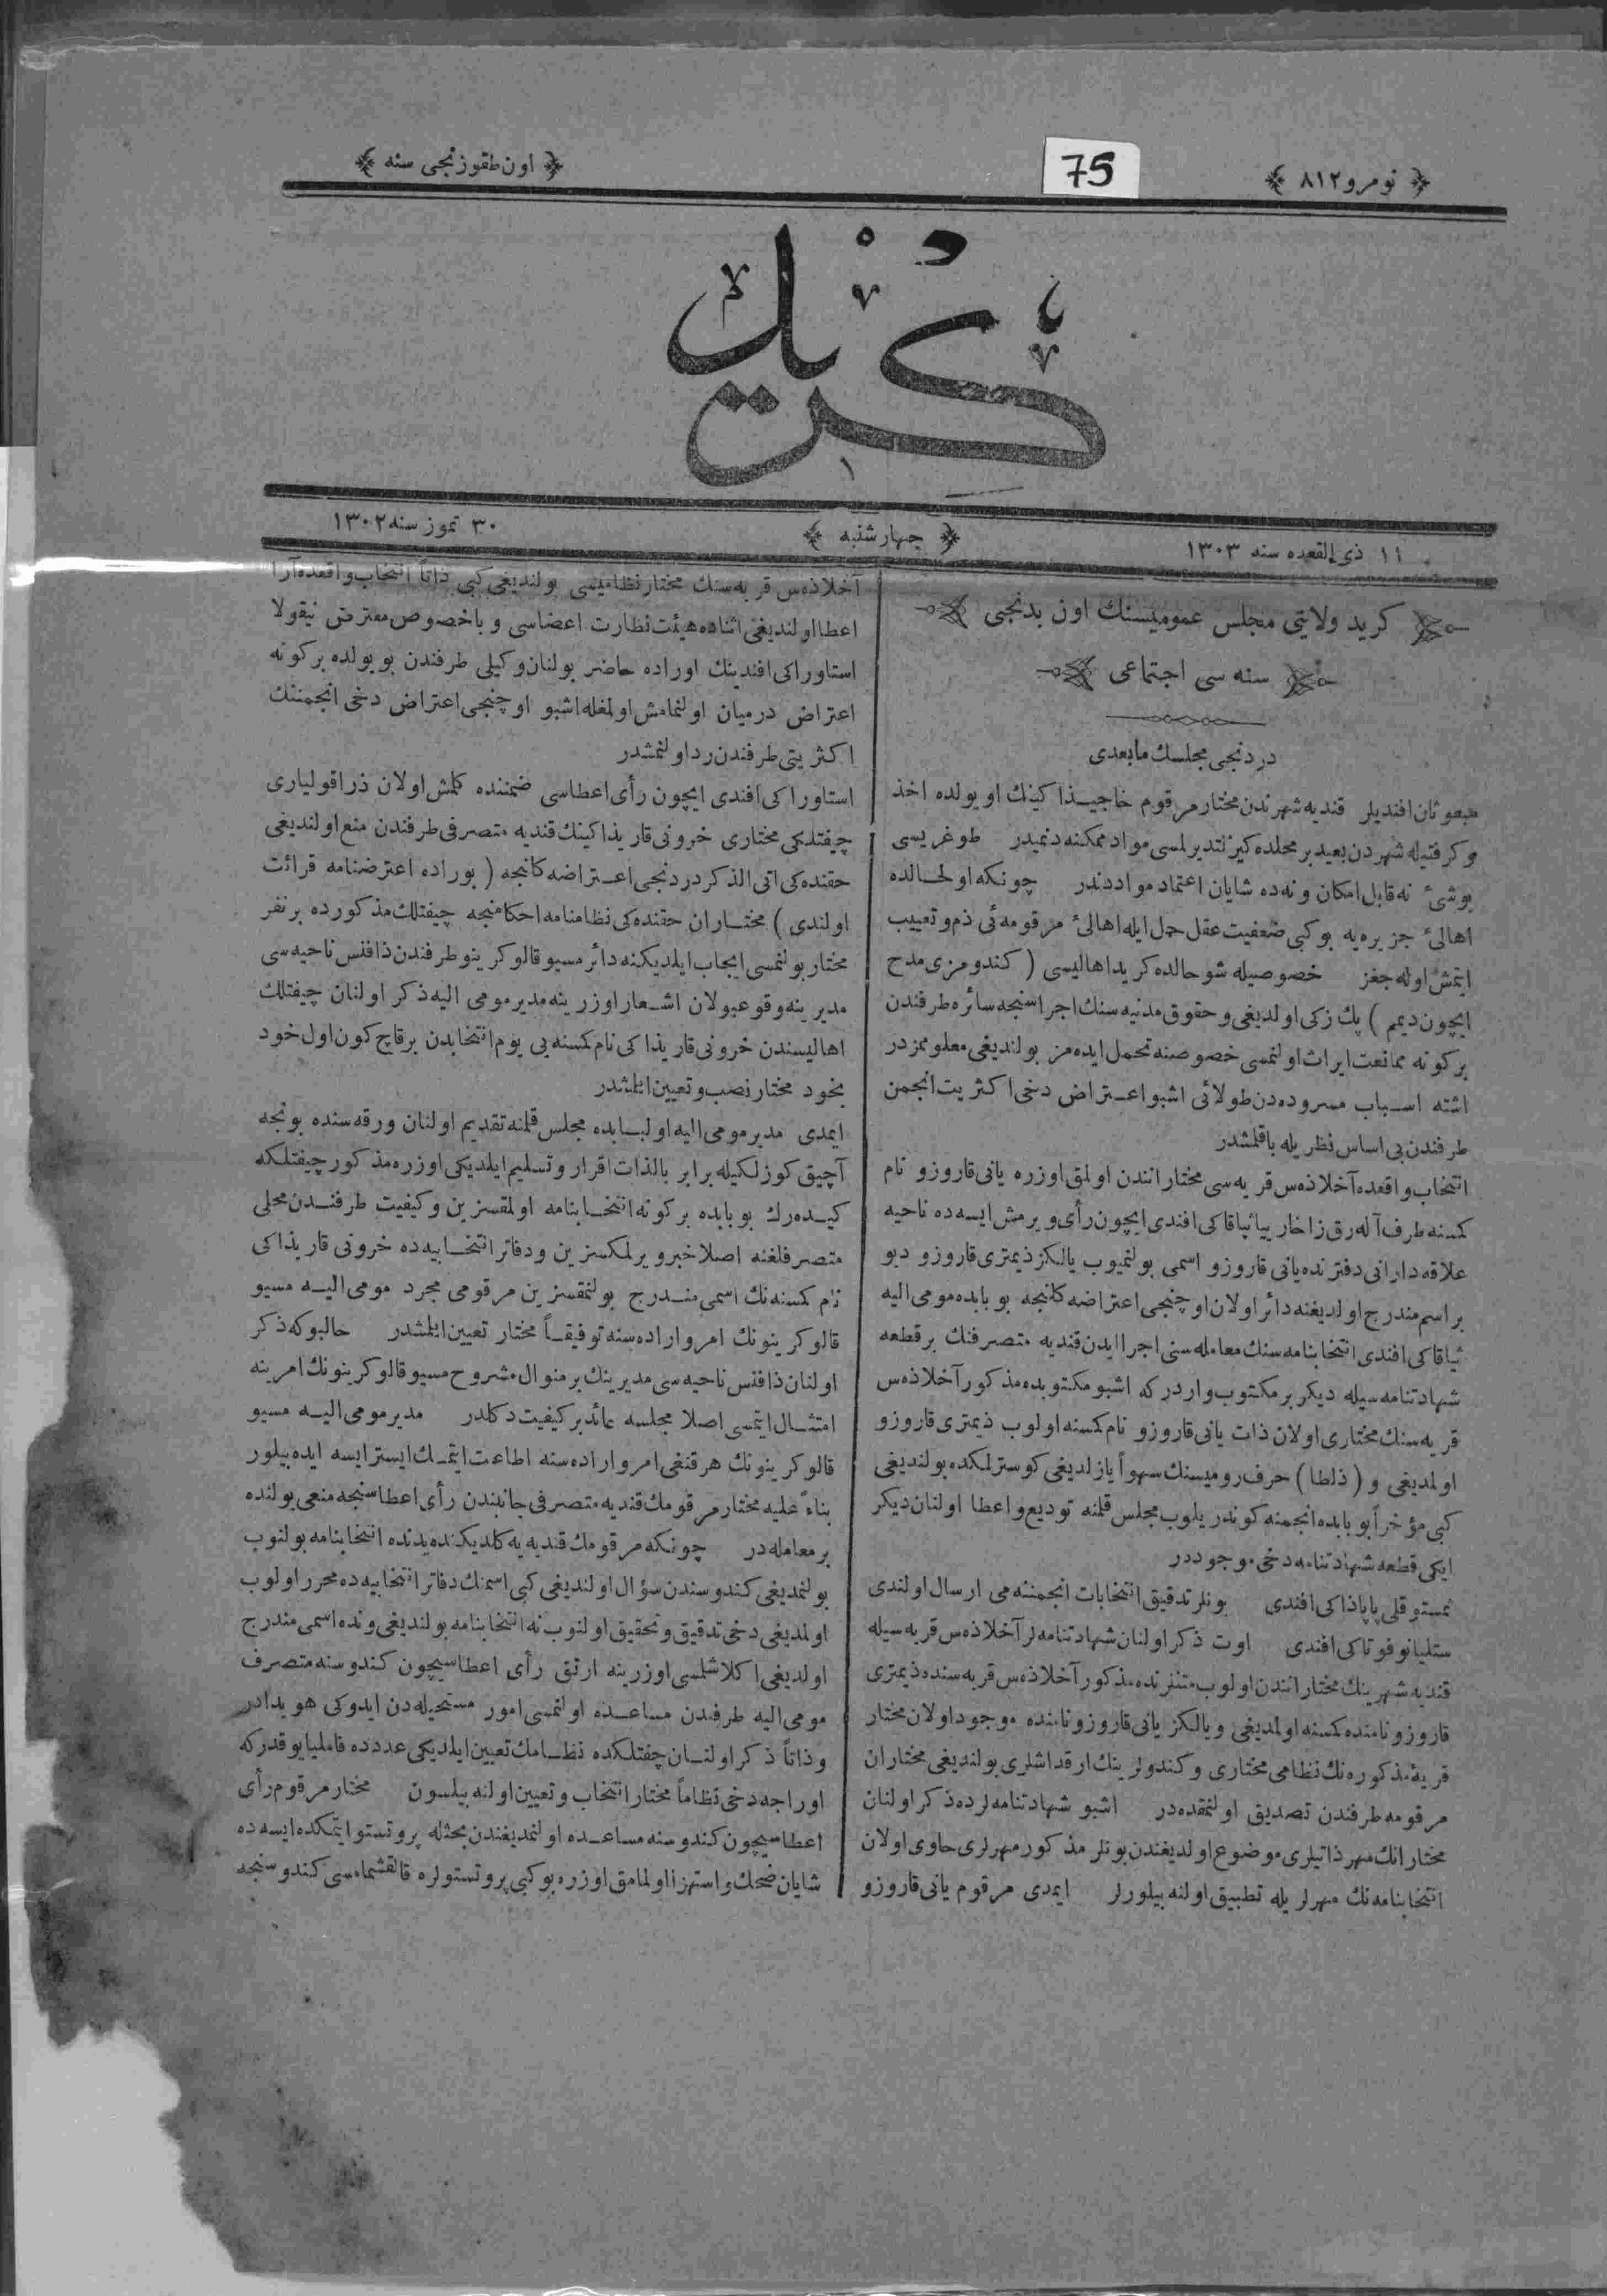 نومرو ٨١٢
75
اون طقوزنجى سنه
كريد
١١ ذى القعده سنه ١٣٠٣
چهارشنبه
٣٠ تموز سنه ١٣٠٢
كريد ولايتى مجلس عموميسنك اون يدنجى
سنه سى اجتماعى
دردنجى مجلسك مابعدى
مبعوثان افنديلر قنديه شهرندن مختار مرقوم خاجيذاكينك او يولده اخذ
و كرفتيله شهردن بعيد بر محلده كيزلتديرلمسى مواد ممكنه دنميدر طوغريسى
بو شىء نه قابل امكان و نه ده شايان اعتماد موادندر چونكه اولحالده
اهالىء جزيره يه بو كبى ضعفيت عقل حمل ايله اهالىء مرقومه ئى ذم و تعييب
ايتمش اوله جغز خصوصيله شو حالده كريد اهاليسى ( كندومزى مدح
ايچون ديمم ) پك زكى اولديغى و حقوق مدنيه سنك اجراسنجه سائره طرفندن
بر كونه ممانعت ايراث اولنمسى خصوصنه تحمل ايده مز بولنديغى معلوممزدر
اشته اسباب مسروده دن طولائى اشبو اعتراض دخى اكثريت انجمن
طرفندن بى اساس نظريله باقلمشدر
انتخاب واقعده آخلاذه س قريه سى مختارانندن اولمق اوزره يانى قاروزو نام
كمسنه طرف آله رق زاخاريا ثياقاكى افندى ايچون رأى ويرمش ايسه ده ناحيه
علاقه دارانى دفترنده يانى قاروزو اسمى بولنميوب يالكز ذيمترى قاروزو ديو
بر اسم مندرج اولديغنه دائر اولان اوچنجى اعتراضه كلنجه بو بابده مومى اليه
ثياقاكى افندى انتخابنامه سنك معامله سنى اجرا ايدن قنديه متصرفنك برقطعه
شهادتنامه سيله ديكر بر مكتوب واردركه اشبو مكتوبده مذكور آخلاذه س
قريه سنك مختارى اولان ذات يانى قاروزو نام كمسنه اولوب ذيمترى قاروزو
اولمديغى و (ذلطا) حرف روميسنك سهواً يازلديغى كوسترلمكده بولنديغى
كبى مؤخراً بو بابده انجمنه كوندريلوب مجلس قلمنه توديع و اعطا اولنان ديكر
ايكى قطعه شهادتنامه دخى موجوددر
ثمستوقلى پاپاذاكى افندى بونلر تدقيق انتخابات انجمننه مى ارسال اولندى
ستليانو فوتاكى افندى اوت ذكر اولنان شهادتنامه لر آخلاذه س قريه سيله
قنديه شهرينك مختارانندن اولوب متنلرنده مذكور آخلاذه س قريه سنده ذيمترى
قاروزو نامنده كمسنه اولمديغى و يالكز يانى قاروزو نامنده موجود اولان مختار
قريۀ مذكوره نك نظامى مختارى و كندولرينك ارقداشلرى بولنديغى مختاران
مرقومه طرفندن تصديق اولنمقده در اشبو شهادتنامه لرده ذكر اولنان
مختارانك مهر ذاتيلرى موضوع اولديغندن بونلر مذكور مهرلرى حاوى اولان
انتخابنامه نك مهرلريله تطبيق اولنه بيلورلر ايمدى مرقوم يانى قاروزو
آخلاذه س قريه سنك مختار نظاميسى بولنديغى كبى ذاتاً انتخاب واقعده آرا
اعطا اولنديغى اثناده هيئت نظارت اعضاسى و باخصوص معترض نيقولا
استاوراكى افندينك اوراده حاضر بولنان وكيلى طرفندن بو يولده بر كونه
اعتراض درميان اولنمامش اولمغله اشبو اوچنجى اعتراض دخى انجمننك
اكثريتى طرفندن رد اولنمشدر
استاوراكى افندى ايچون رأى اعطاسى ضمننده كلمش اولان ذراقولياري
چيفتلكى مختارى خرونى قاريذاكينك قنديه متصرفى طرفندن منع اولنديغى
حقنده كى اتى الذكر دردنجى اعتراضه كلنجه ( بوراده اعترضنامه قرائت
اولندى ) مختاران حقنده كى نظامنامه احكامنجه چيفتلك مذكورده بر نفر
مختار بولنمسى ايجاب ايلديكنه دائر مسيو قالوكرينو طرفندن ذافنس ناحيه سى
مديرينه وقوعبولان اشعار اوزرينه مدير مومى اليه ذكر اولنان چيفتلك
اهاليسندن خرونى قاريذاكى نام كمسنه يى يوم انتخابدن برقاچ كون اول خود
بخود مختار نصب و تعيين ايلمشدر
ايمدى مدير مومى اليه اولبابده مجلس قلمنه تقديم اولنان ورقه سنده بونجه
آچيق كوزلكيله برابر بالذات اقرار و تسليم ايلديكى اوزره مذكور چيفتلكه
كيده رك بو بابده بر كونه انتخابنامه اولمقسزين و كيفيت طرفندن محلى
متصرفلغنه اصلا خبر ويرلمكسزين و دفاتر انتخابيه ده خرونى قاريذاكى
نام كمسنه نك اسمى مندرج بولنمقسزين مرقومى مجرد مومى اليه مسيو
قالوكرينونك امر و اراده سنه توفيقاً مختار تعيين ايلمشدر حالبوكه ذكر
اولنان ذافنس ناحيه سى مديرينك بر منوال مشروح مسيو قالوكرينونك امرينه
امتثال ايتمسى اصلا مجلسه عائد بر كيفيت دكلدر مدير مومى اليه مسيو
قالوكرينونك هر قنغى امر و اراده سنه اطاعت ايتمك ايستر ايسه ايده بيلور
بناءً عليه مختار مرقومك قنديه متصرفى جانبندن رأى اعطاسنجه منعى يولنده
بر معامله در چونكه مرقومك قنديه يه كلديكنده يدنده انتخابنامه بولنوب
بولنمديغى كندوسندن سؤال اولنديغى كبى اسمنك دفاتر انتخابيه ده محرر اولوب
اولمديغى دخى تدقيق و تحقيق اولنوب نه انتخابنامه بولنديغى و نده اسمى مندرج
اولديغى اكلاشلمسى اوزرينه ارتق رأى اعطاسيچون كندوسنه متصرف
مومى اليه طرفندن مساعده اولنمسى امور مستحيله دن ايدوكى هويدادر
و ذاتاً ذكر اولنان چفتلكده نظامك تعيين ايلديكى عددده فامليا يوقدركه
اوراجه دخى نظاماً مختار انتخاب و تعيين اولنه بيلسون مختار مرقوم رأى
اعطاسيچون كندوسنه مساعده اولنمديغندن بحثله پروتستو ايتمكده ايسه ده
شايان ضحك و استهزا اولمامق اوزره بو كبى پروتستولره قالقشمامسى كندوسنجه